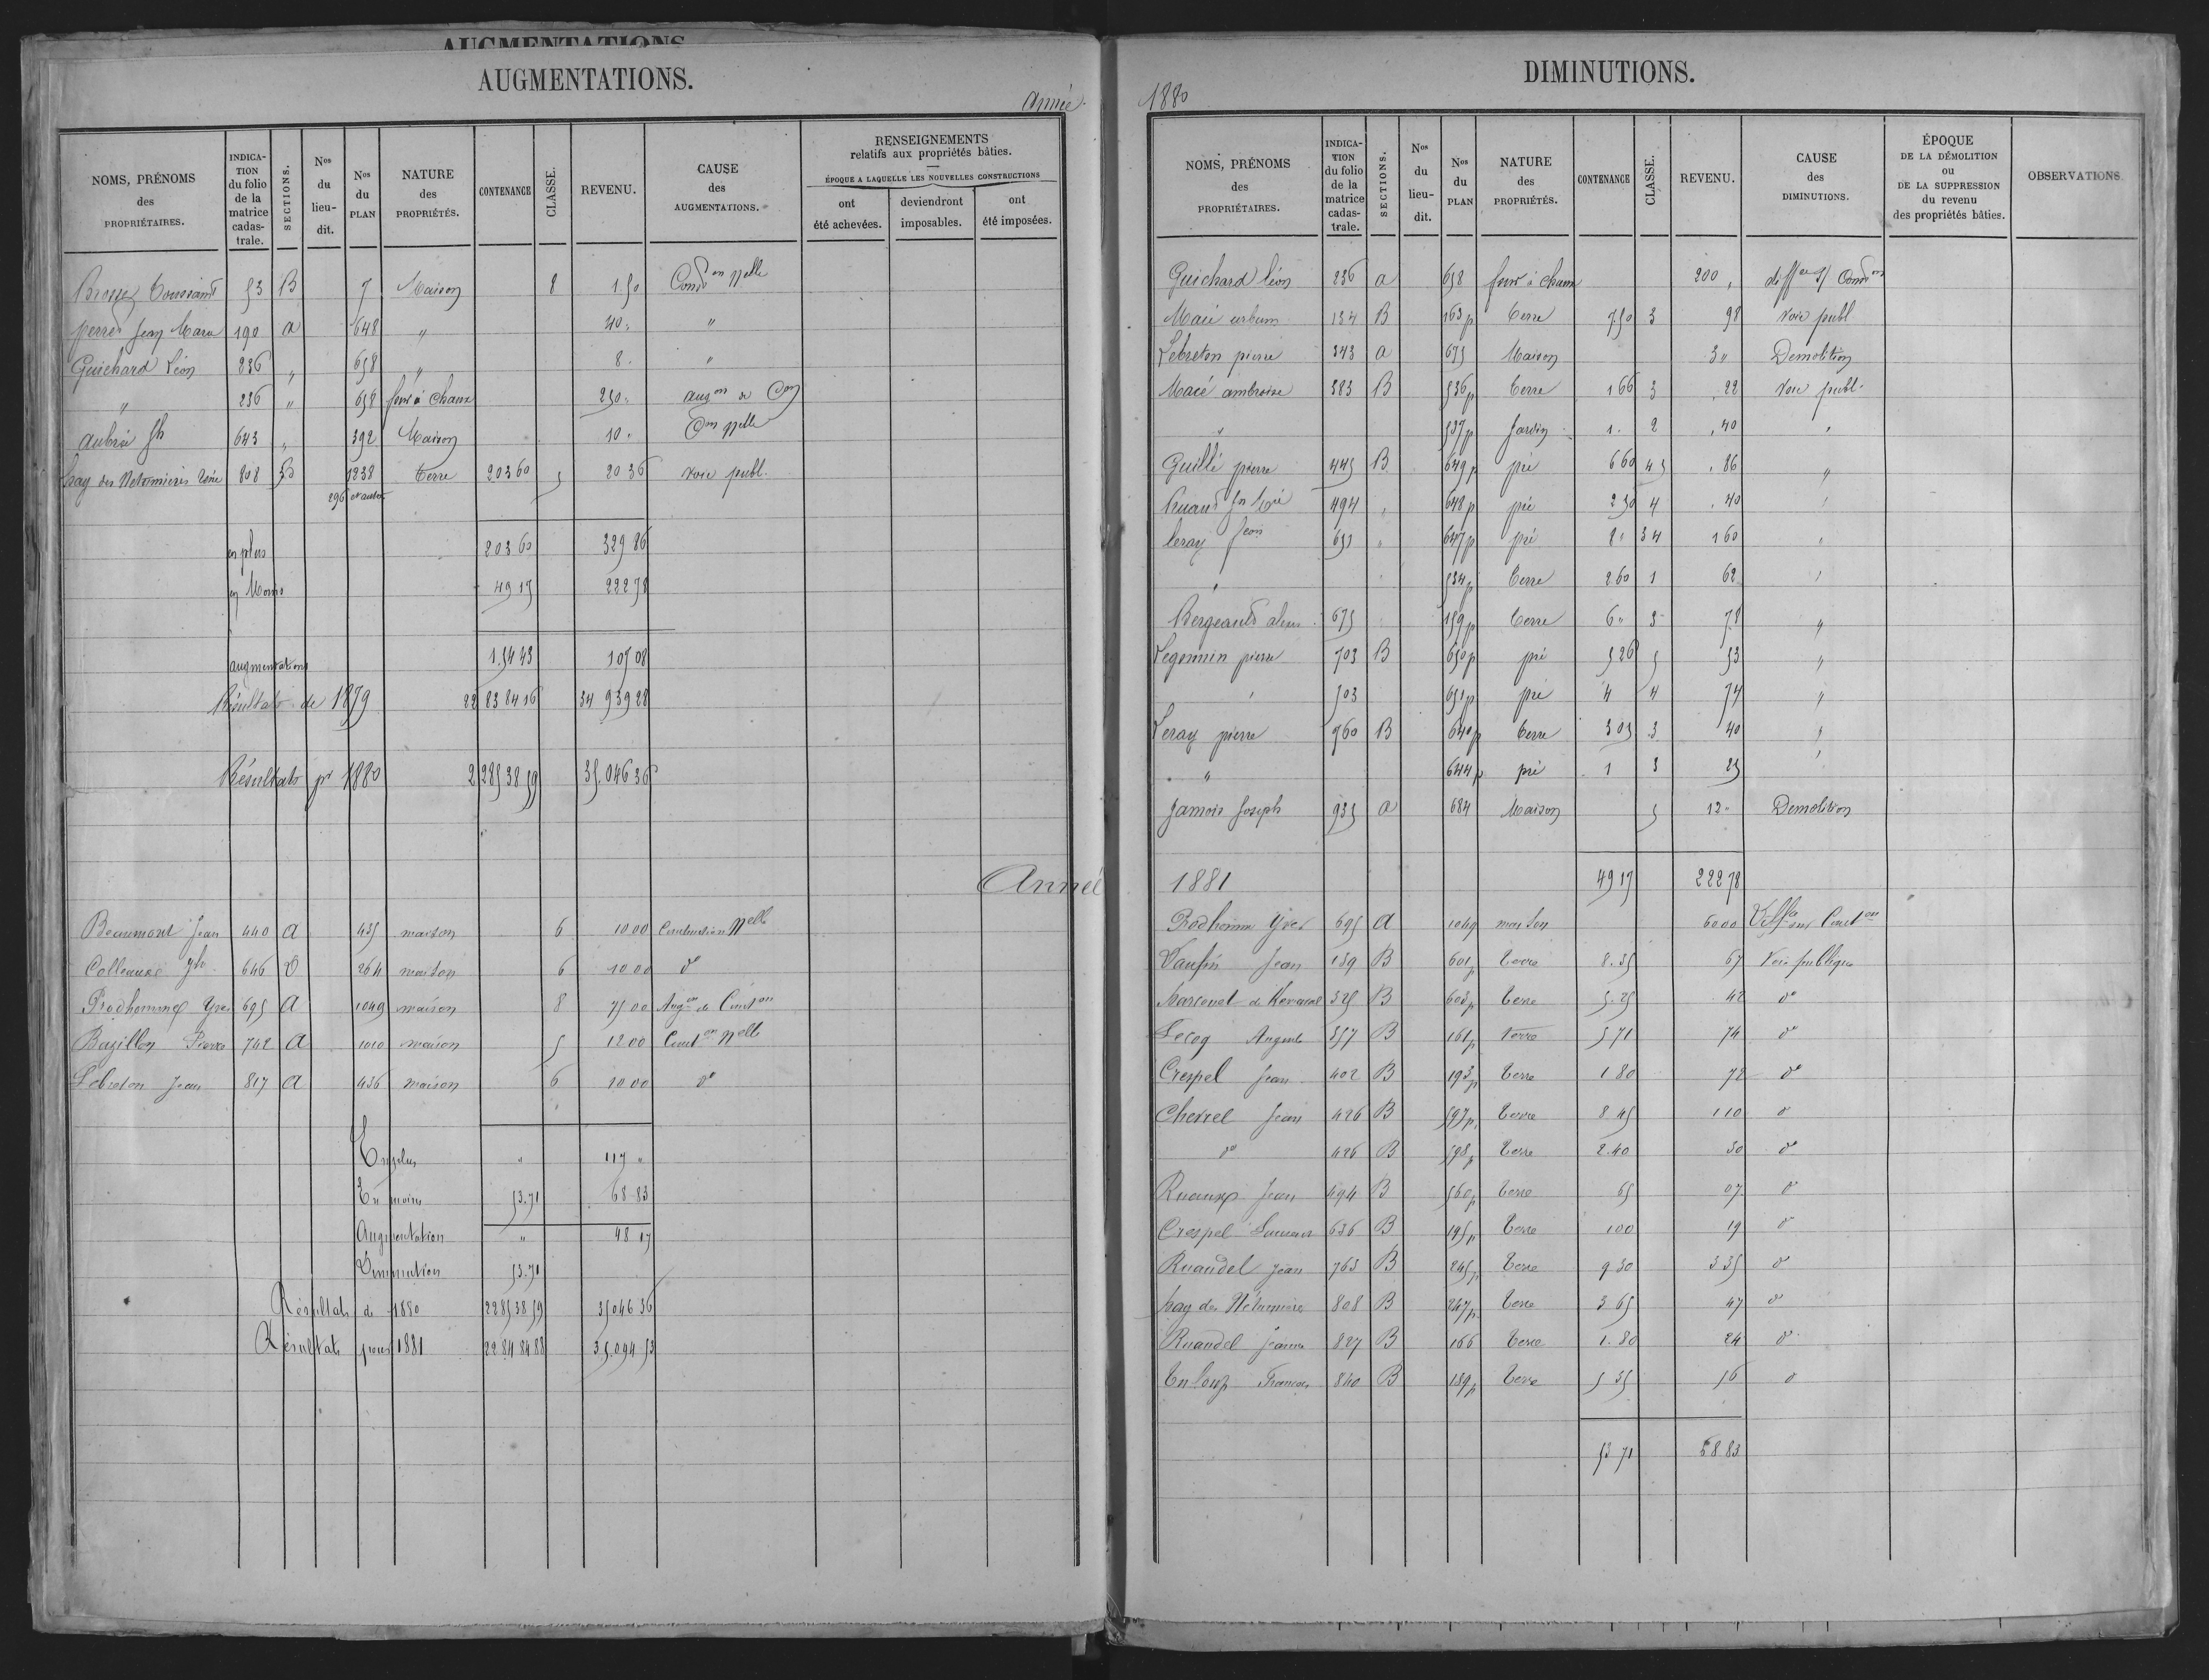 AUGMENTATIONS
AUGMENTATIONS.
Année
NOMS, PRÉNOMS des PROPRIÉTAIRES. INDICA-TION du folio de la matrice cadas-trale. SECTIONS. Nos du lieu-dit. Nos du PLAN NATURE des PROPRIÉTÉS. CONTENANCE CLASSE. REVENU. CAUSE des AUGMENTATIONS. RENSEIGNEMENTS relatifs aux propriétés bâties. ÉPOQUE A LAQUELLE LES NOUVELLES CONSTRUCTIONS ont été achevées. deviendront imposables. ont été imposées.
Toussaint 53 B 7 Maison 8 150 Conson nelle
Jean Marie 190 a 648 " 40. "
Guichard Léon 236 " 658 " 8. "
" 236 " 658 four à chaux 250. augon de Con
Aubrée Jh 643 " 392 Maison 10. Con nelle
hay des Netumieres 808 1238 terre 203 60 5 20 36 voie publ.
296 et autres
en plus 203 60 329 86
en Moins 49 17 222 78
augmentations 1.54 43 107 08
Résultats de 1879 22 83 84 16 34 939 28
Résultats pr 1880 2 285 38 59 35.046 36
Année
Beaumont Jean 440 A 435 maison 6 10 00 Construction Nelle
Colleaux Jh 646 D 264 maison 6 10 00 do
Prodhomme Yves 695 A 1049 maison 8 75 00 Augon de Conston
Bazillon Pierre 742 A 1010 maison 5 12 00 Conston Nelle
Lebreton Jean 817 A 436 maison 6 10 00 do
En plus " 117 "
En moins 53.71 68 83
Augmentation " 48 17
Diminution 53.71
Résultats de 1880 2285 38 59 35046 36
Résultats pour 1881 2284 84 88 35.094 53
DIMINUTIONS.
1880
NOMS, PRÉNOMS des PROPRIÉTAIRES. INDICA-TION du folio de la matrice cadas-trale. SECTIONS. Nos du lieu-dit. Nos du PLAN NATURE des PROPRIÉTÉS. CONTENANCE CLASSE. REVENU. CAUSE des DIMINUTIONS. ÉPOQUE DE LA DÉMOLITION OU DE LA SUPPRESSION du revenu des propriétés bâties. OBSERVATIONS.
Guichard léon 236 a 658 four à chaux 200 diffce s/ Conson
Macé urbain 134 B 163 p terre 750 3 98 voie publ
Lebreton pierre 343 a 675 Maison 3" Demolition
Macé ambroise 383 B 536 p terre 166 3 22 voie publ.
" 537 p Jardin 1. 2 40 "
Guillé pierre 445 B 649 p pré 660 4 5 86 "
494 " 648 p pré 250 4 40 "
leray Jean 653 " 647 p pré 2" 3 4 160 "
" 534 p terre 260 1 62 "
Bergeault 675 159 p terre 6" 3 78 "
pierre 703 B 650 p pré 526 5 53 "
" 703 651 p pré 4 4 74 "
Leray pierre 760 B 640 p terre 305 3 40 "
" 644 p pré 1 3 23 "
Jamois Joseph 935 a 684 Maison 5 12" Demolition
49 17 222 78
1881
Prodhomme Yves 695 A 1049 maison 6000 Diffce sur Conston
Jean 159 B 601 p terre 8.35 67 Voie publique
de 325 B 603 p terre 5.25 42 do
Lecoq 357 B 161 p terre 5 71 74 do
Crespel Jean 402 B 193 p terre 1 80 72 do
Cherel Jean 426 B 597 p. terre 8 45 110 do
do 426 B 598 p terre 2.40 30 do
Ruaux Jean 494 B 560 p terre 65 07 do
Crespel 636 B 195 p terre 100 19 do
Ruaudel Jean 763 B 245 p terre 9 30 3 35 do
hay des Nétumières 808 B 247 p. terre 3 65 47 do
Ruaudel Jeanne 827 B 166 terre 1.80 24 do
François 840 B 159 p terre 5 35 56 do
53 71 68 83